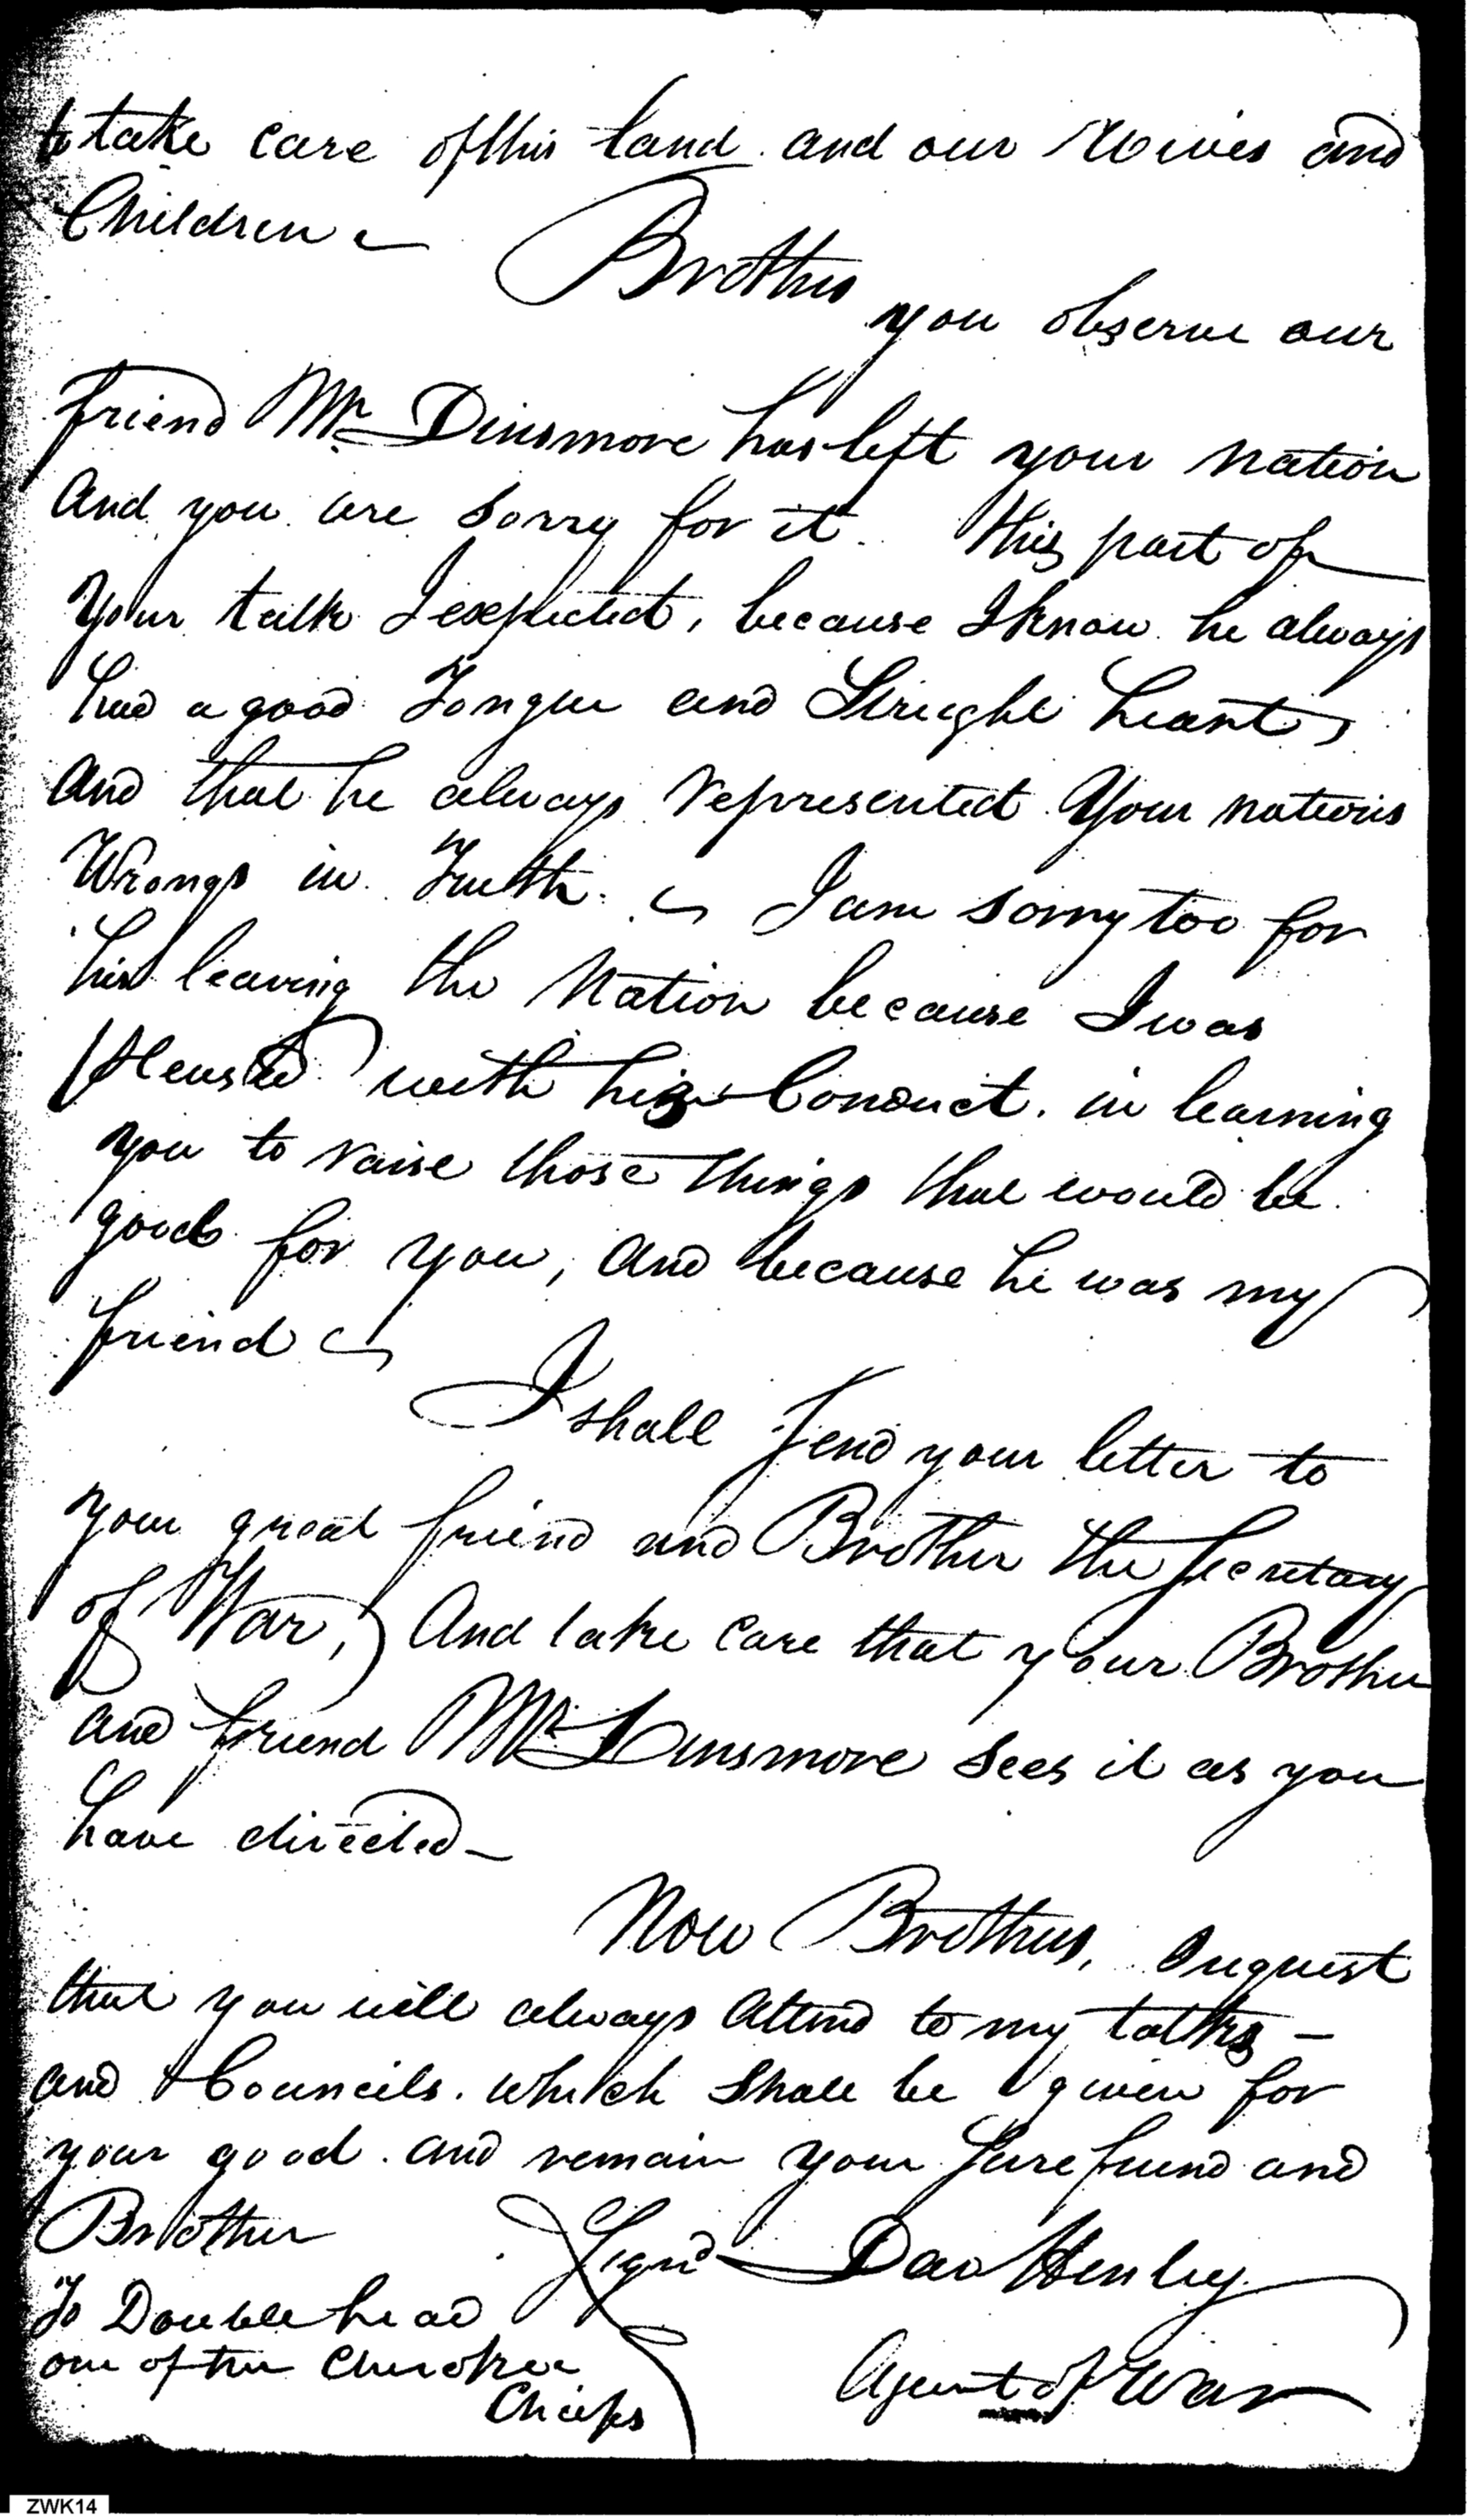 to take care of this land and our Wives and
Children
Brothers
you observe our
friend Mr Dinsmore has left your nation
And you are sorry for it. this part of
Your talk I expected, because I know he always
had a good Tongue and Streight heart,
And that he always represented Your nations
Wrongs in Truth. I am sorry too for
his leaving the Nation because I was
pleased with his Conduct. in learning
you to raise those things that would be
good for you, and because he was my
friend
I shall send your letter to
your great friend and Brother the Secretary
of War, And take care that your Brother
and friend Mr Dinsmore sees it as you
have directed
Now Brothers, I request
that you will always attend to my talks -
and Councils. which shall be given for
your good. and remain your sure friend and
Brother
Signd Dav Henley
To Double head
one of the Cherokee
Chiefs
Agent of War
ZWK14